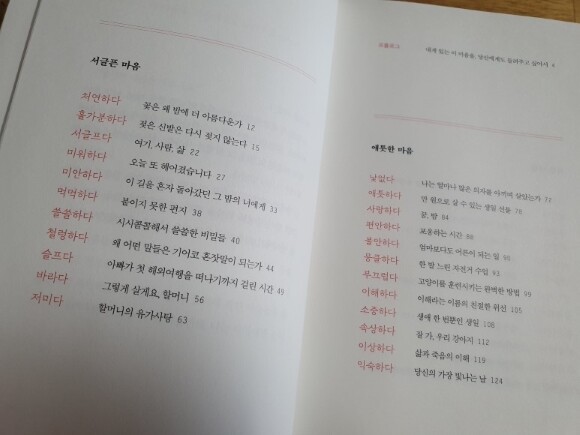 서글픈 마음
처연하다 꽃은 왜 밤에 더 아름다운가 12
홀가분하다 젖은 신발은 다시 젖지 않는다 15
서글프다 여기, 사람, 삶 22
미워하다 오늘 또 헤어졌습니다 27
미안하다 이 길을 혼자 돌아갔던 그 밤의 너에게 33
먹먹하다 붙이지 못한 편지 38
쓸쓸하다 시시콜콜해서 쓸쓸한 비밀들 40
철렁하다 왜 어떤 말들은 기어코 혼잣말이 되는가 44
슬프다 아빠가 첫 해외여행을 떠나기까지 걸린 시간 49
바라다 그렇게 살게요, 할머니 56
저미다 할머니의 유가사탕 63
프롤로그 내게 있는 이 마음을, 당신에게도 들려주고 싶어서
애틋한 마음
낯없다 나는 얼마나 많은 의자를 아끼며 살았는가 77
애틋하다 만 원으로 살 수 있는 생일 선물
사랑하다 꿈, 밤 84
편안하다 포옹하는 시간 88
불안하다 엄마보다도 어른이 되는 일
뭉클하다 한 발 느린 자전거 수업
부끄럽다 고양이를 훈련시키는 완벽한 방법
이해하다 이해라는 이름의 친절한 위선 105
소중하다 생애 한 번뿐인 생일 108
속상하다 잘 가, 우리 강아지 112
이상하다 삶과 죽음의 이해 119
익숙하다 당신의 가장 빛나는 날 124